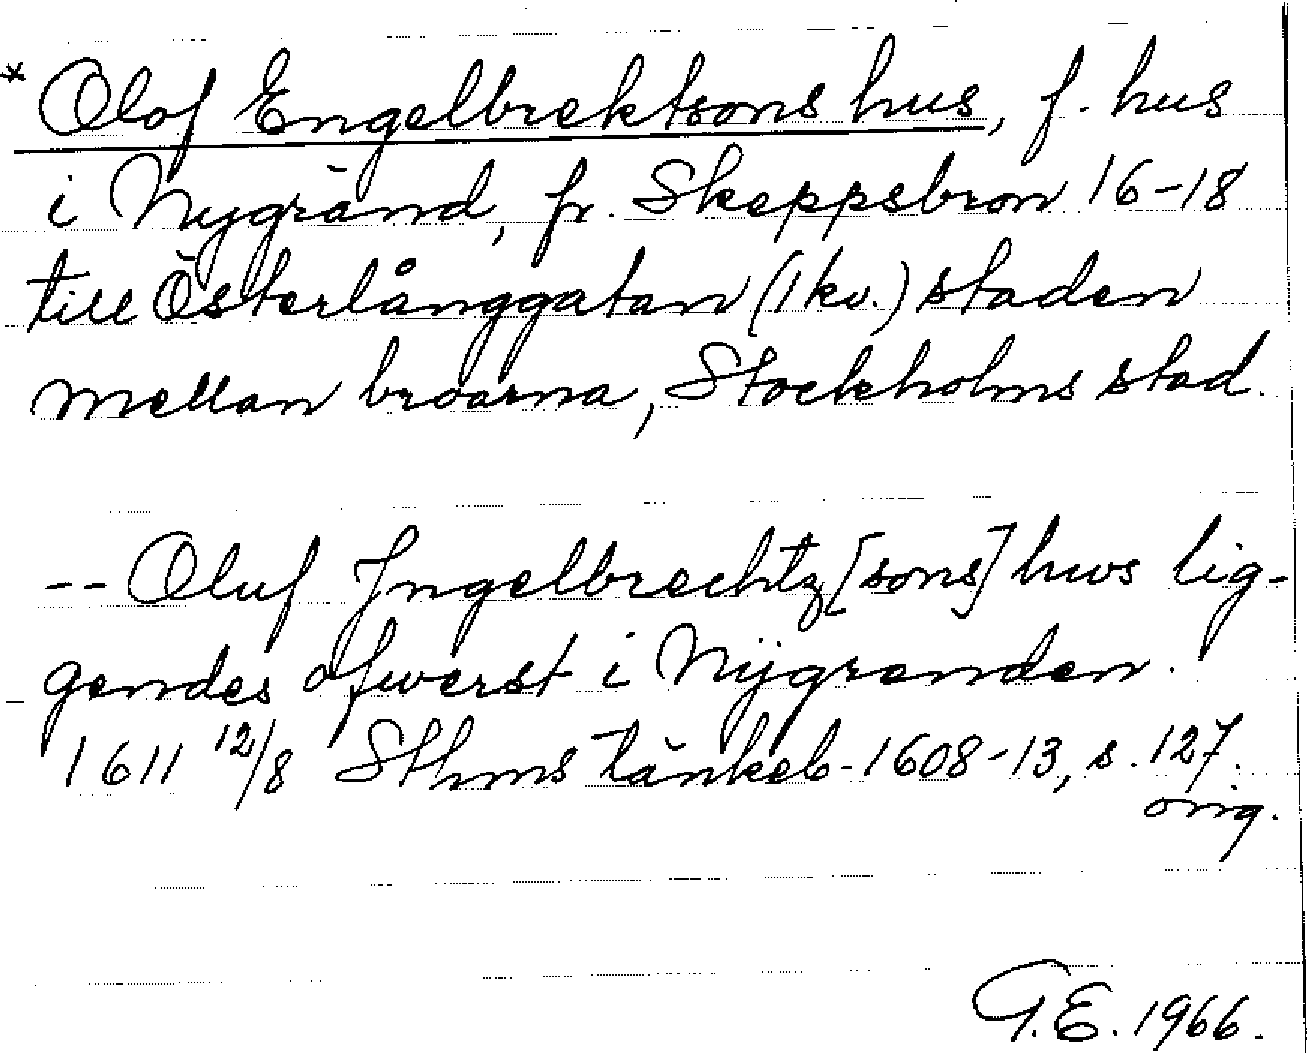 * Olof Engelbrektsons hus, f. hus
i Nygränd, fr. Skeppsbron 16-18
till Österlånggatan (1 kv.) staden
mellan broarna, Stockholms stad.
-- Oluf Jngelbrechtz [sons] hws lig-
gendes ofwerst i Nÿgrenden.
1611 12/8 Sthms tänkeb. 1608-13, s. 127.
orig.
G.E. 1966.